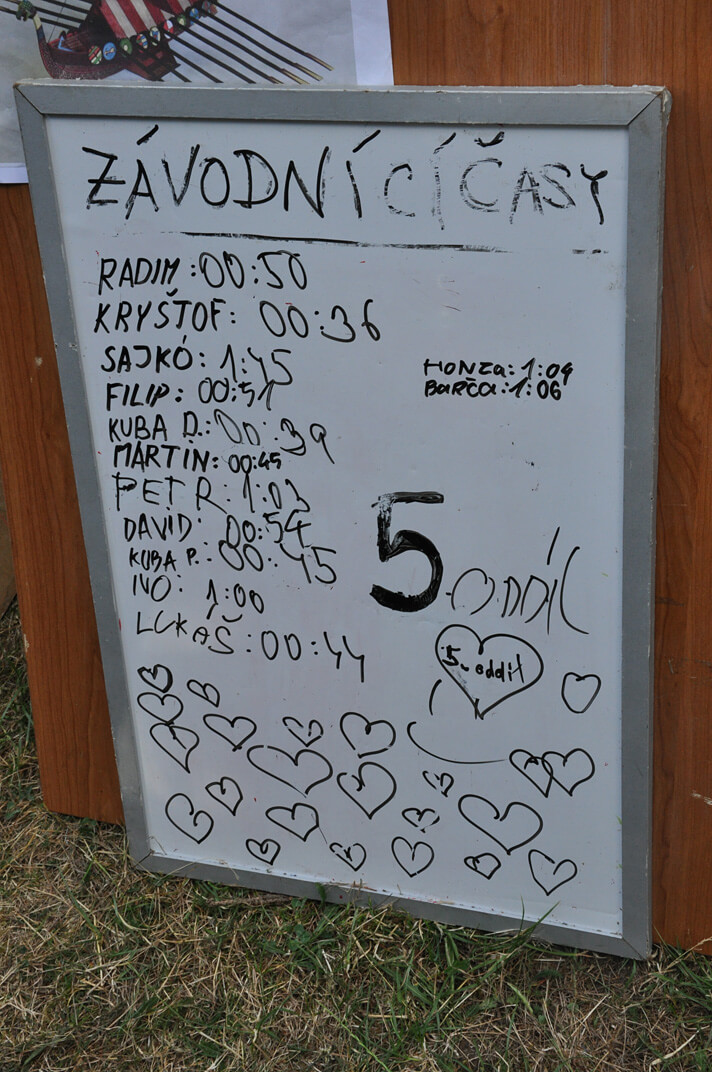 ZÁVODNÍCÍ ČASY
RADIM: 00:50
KRYŠTOF: 00:36
SAJKÓ: 1:45
FILIP: 00:51
KUBA D.: 00:39
MARTIN: 00:45
PETR: 1:03
DAVID: 00:54
KUBA P.: 00:45
IVO: 1:00
LUKAŠ: 00:44
HONZA: 1:09
BARČA: 1:06
5. ODDÍL
5. oddíl